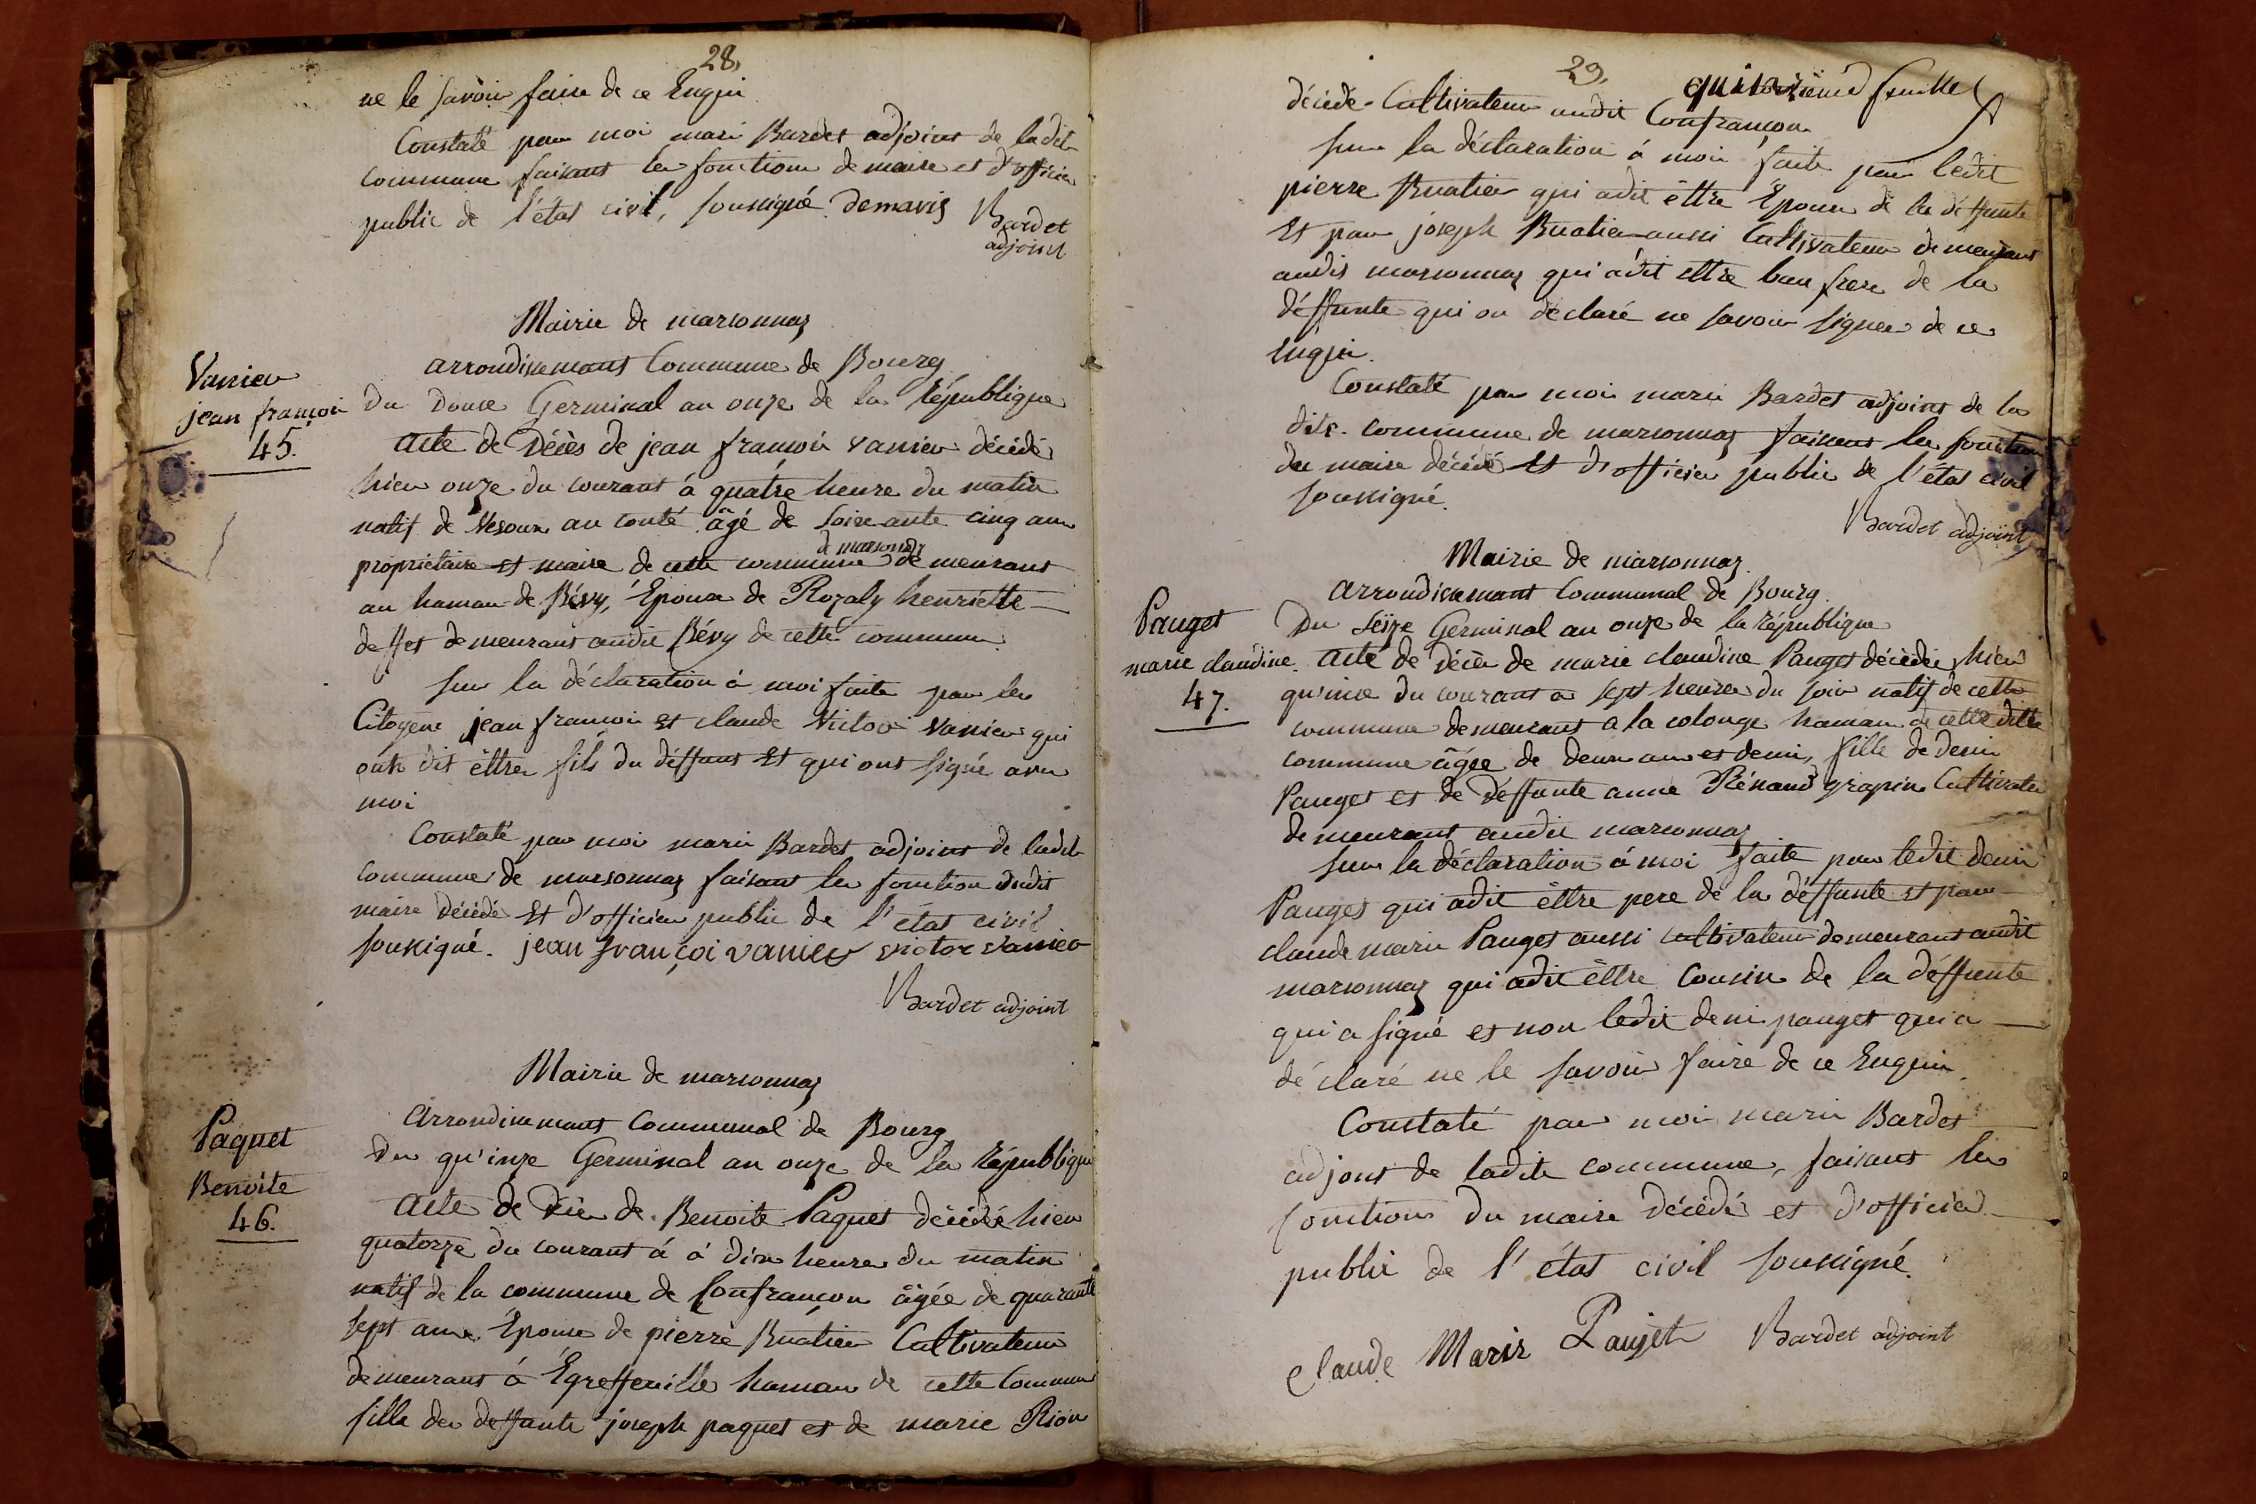 28,
ne le savoir faire de ce Enquis
Constaté par moi marie Bardet adjoint de ladite
commune faisant les fonctions de maire et d'officier
public de l'état civil, soussigné. demaris Bardet
adjoint
Mairie de marsonnas
arrondissemant Commune de Bourg
Vanier
jean françois
45.
Du Douze Germinal an onze de la République
Acte de Décès de jean françois vanier décédé
hier onze du courant á quatre heure du matin
natif de Vesoux au conté âgé de soixante cinq ans
de marsonnas
propriétaire et maire de cette commune demeurant
au hamau de Bévy, Epoux de Rozaly henriette
deffet demeurant audit Bévy de cette commune.
Sur la déclaration à moi faite par les
Citoyens jean françois et claude Victor Vanier qui
ont dit êttre fils du déffunt Et qui ont signé avec
moi
Constaté par moi marie Bardet adjoint de ladite
commune de marsonnas faisant les fonction dudit
maire décédé Et d'officier public de l'état civil
soussigné. jean françoi vanier victor vanier
Bardet adjoint
Mairie de marsonnas
Arrondissemant Communal de Bourg
Paquet
Benoite
46.
Du qu'inze Germinal an onze de la République
Acte de Décès de Benoite Paquet décédé hier
quatorze du courant á á dix heures du matin
natif de la commune de Confrançon âgée de quarante
sept ans Epouse de pierre Buatier Cultivateur
demeurant á Egreffeuille hamau de cette Commune
fille des deffunts joseph paquet et de marie Rion
29,
quinzième feuille
décédé Cultivateur audit Confrançon
Sur la déclaration á moi faite par ledit
pierre Buatier qui a dit êttre Epoux de la déffunte
Et par joseph Buatier aussi Cultivateur demeurant
audit marsonnas qui a dit ettre beau frere de la
déffunte qui on déclaré ne savoir signer de ce
Enquis.
Constaté par moi marie Bardet adjoint de la
dite commune de marsonnas faisant les fonction
du maire décédé Et d'officier public de l'état civil
soussigné.
Bardet adjoint
Mairie de marsonnas
arrondissemant Communal de Bourg.
Pauget
marie claudine
47.
Du Seize Germinal an onze de la République
Acte de décès de marie claudine Pauget décédée hier
qu'inze du courant a sept heures du soir natif de cette
commune demeurant a la colonge hamau de cette ditte
commune âgée de deux ans et demi, fille de denis
Pauget et de déffunte anne Rénaud grapin Cultivateur
demeurant audit marsonnas
Sur la déclaration á moi faite par ledit denis
Pauget qui a dit êttre pere de la déffunte et par
claude marie Pauget aussi cultivateur demeurant audit
marsonnas qui a dit êttre cousin de la déffunte
qui a signé et non ledit denis pauget qui a
déclaré ne le savoir faire de ce Enquis.
Constaté par moi marie Bardet
adjont de ladite commune, faisant les
fonctions du maire décédé et d'officier
public de l'état civil soussigné.
Claude Marie Pauget Bardet adjoint